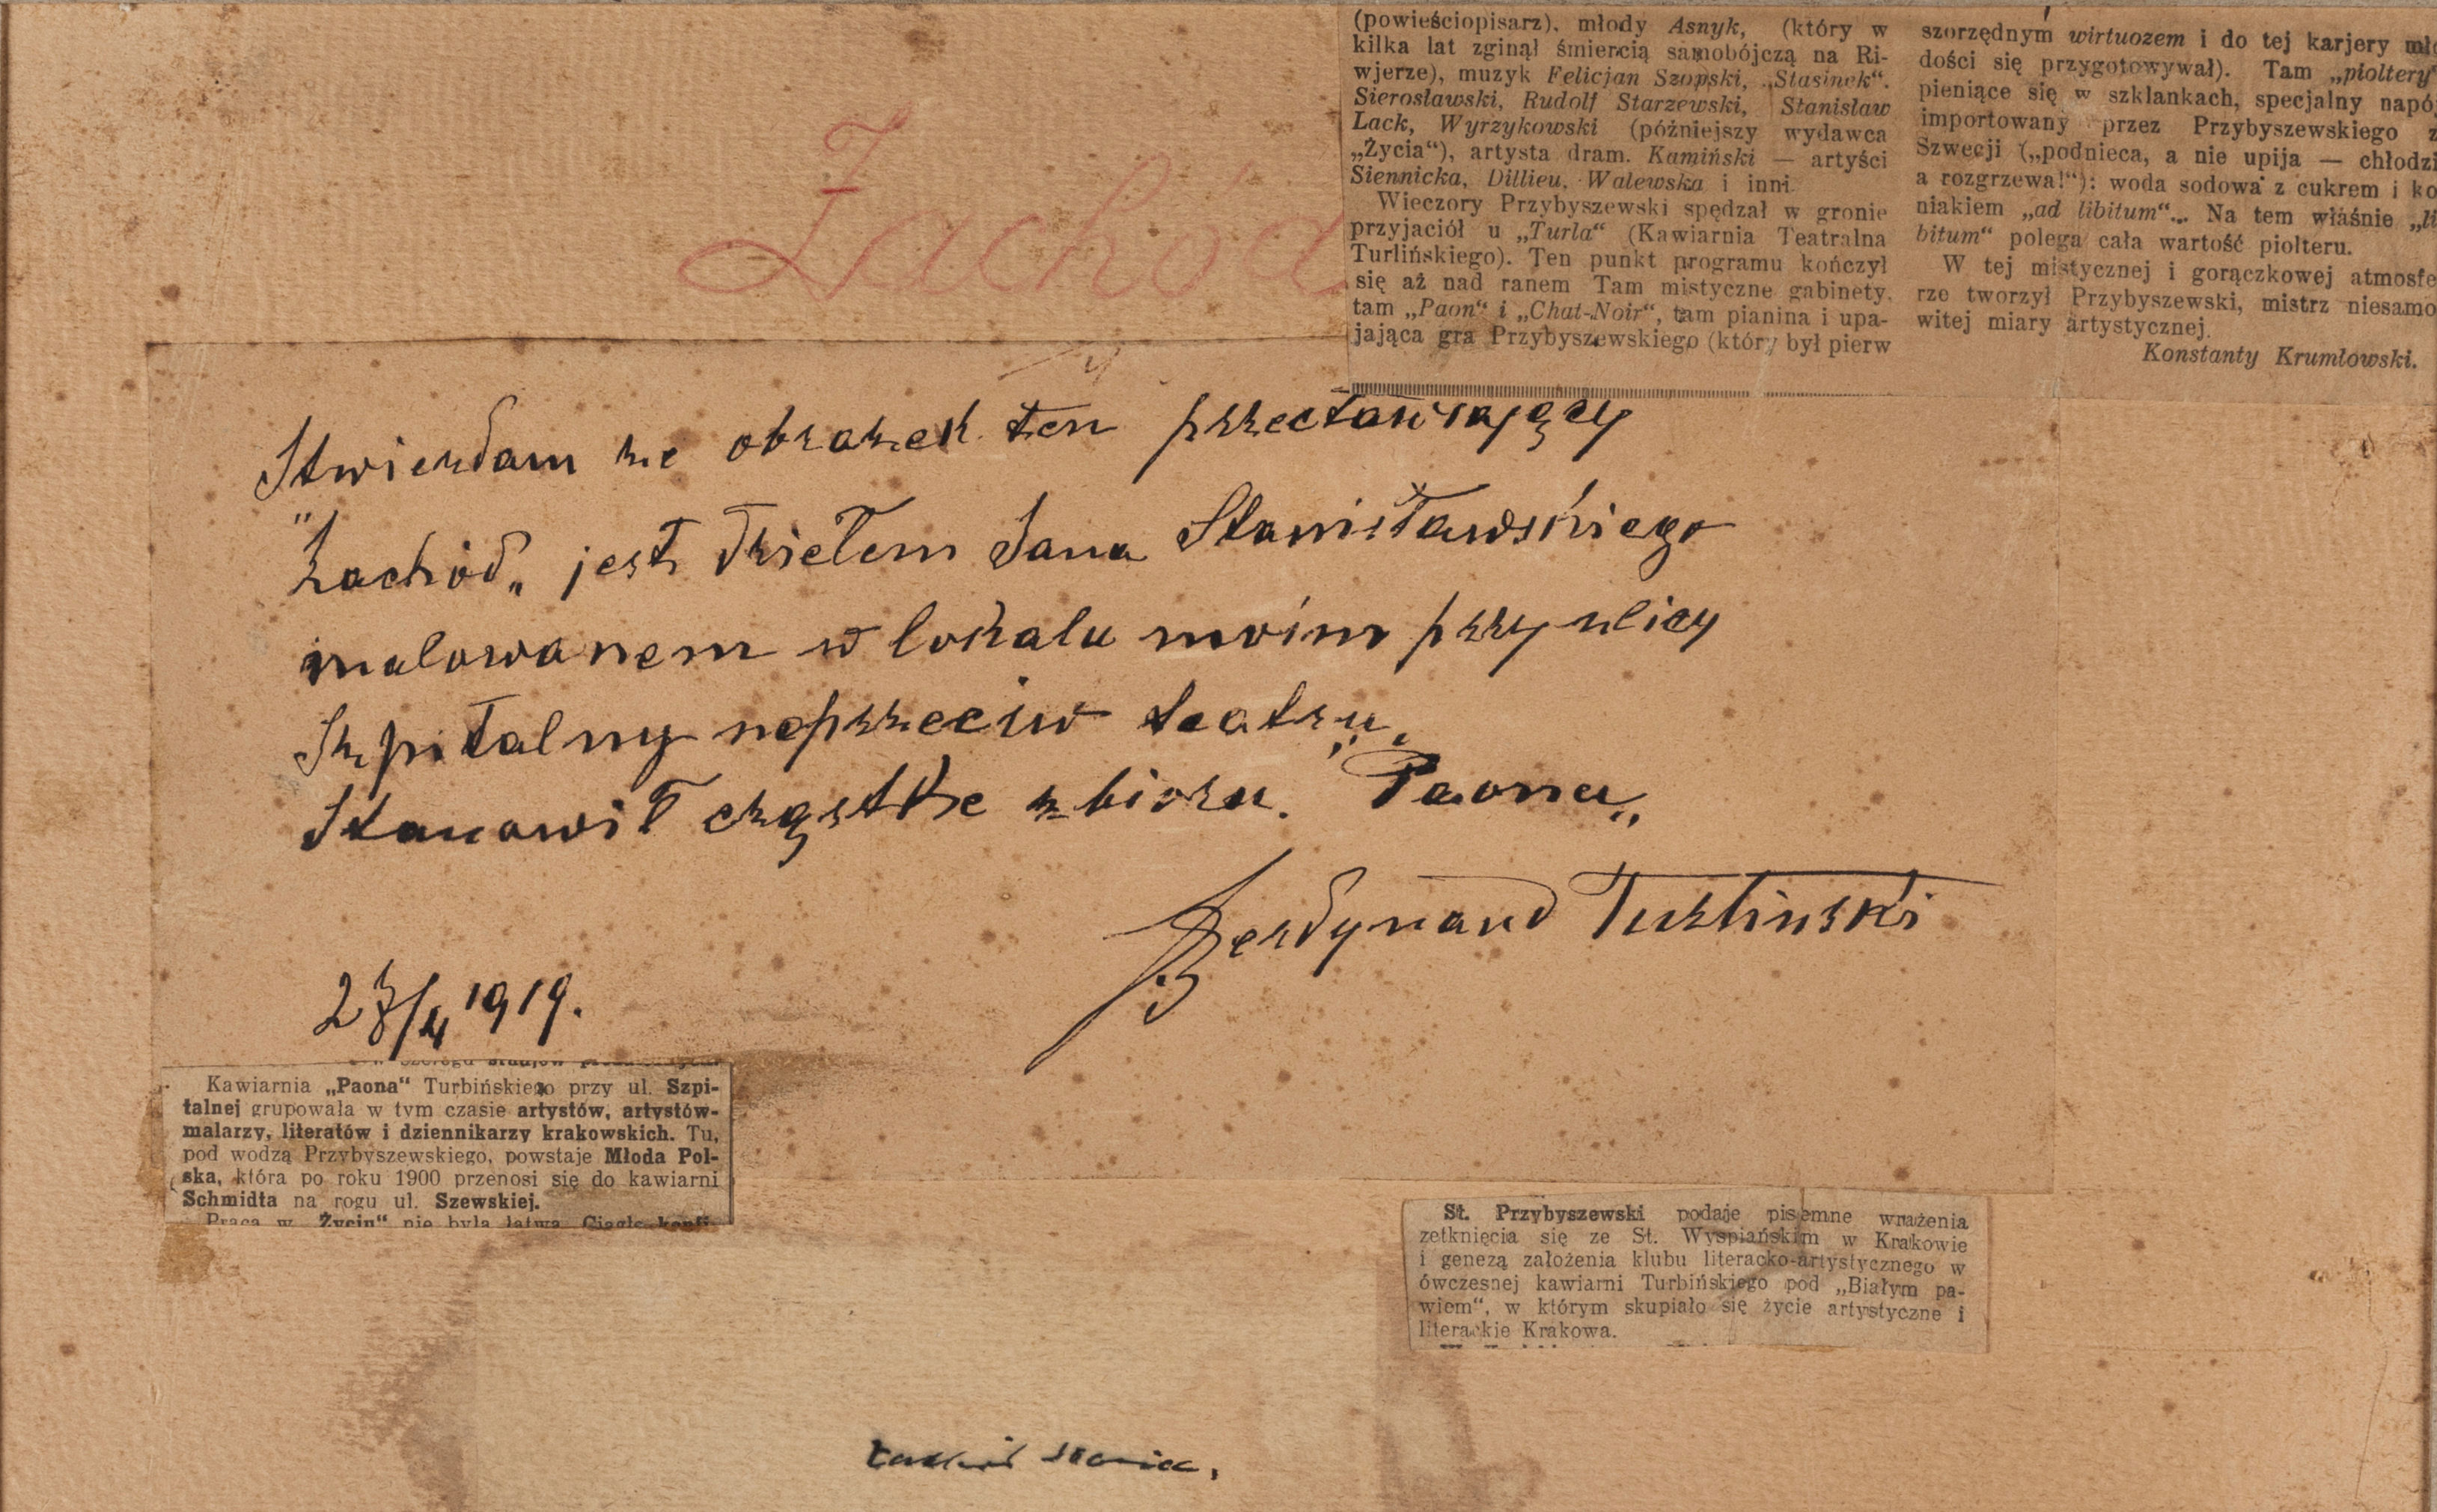 (powieściopisarz), młody Asnyk, (który w
kilka lat zginął śmiercią samobójczą na Ri-
wjerze), muzyk Felicjan Szopski, „Stasinek“.
Sierosławski, Rudolf Starzewski, Stanisław
Lack, Wyrzykowski (późniejszy wydawca
„Życia“), artysta dram. Kamiński — artyści
Siennicka, Dillieu, Walewska i inni.
Wieczory Przybyszewski spędzał w gronie
przyjaciół u „Turla“ (Kawiarnia Teatralna
Turlińskiego). Ten punkt programu kończył
się aż nad ranem Tam mistyczne gabinety,
tam „Paon“ i „Chat-Noir“, tam pianina i upa-
jająca gra Przybyszewskiego (który był pierw
szorzędnym wirtuozem i do tej karjery mło
dości się przygotowywał). Tam „pioltery“
pieniące się w szklankach, specjalny napój
importowany przez Przybyszewskiego z
Szwecji („podnieca, a nie upija — chłodzi
a rozgrzewa!“): woda sodowa z cukrem i ko
niakiem „ad libitum“... Na tem właśnie „li
bitum“ polega cała wartość piolteru.
W tej mistycznej i gorączkowej atmosfe
rze tworzył Przybyszewski, mistrz niesamo
witej miary artystycznej.
Konstanty Krumłowski.
Zachód
Stwierdam ze obrazek ten przectawiający
"Zachód„ jest dziełem Jana Stanisławskiego
malowanem w lokalu moim przy ulicy
Szpitalny naprzeciw teatru.
Stanowił cząstke zbioru. "Paonu„
Ferdynand Turliński
23/4 1919.
Kawiarnia „Paona“ Turbińskiego przy ul. Szpi-
talnej grupowała w tym czasie artystów, artystów-
malarzy, literatów i dziennikarzy krakowskich. Tu,
pod wodzą Przybyszewskiego, powstaje Młoda Pol-
ska, która po roku 1900 przenosi się do kawiarni
Schmidta na rogu ul. Szewskiej.
Praca w „Życiu“ nie była łatwa. Ciągłe
St. Przybyszewski podaje pisemne wrażenia
zetknięcia się ze St. Wyspiańskim w Krakowie
i genezą założenia klubu literacko-artystycznego w
ówczesnej kawiarni Turbińskiego pod „Białym pa-
wiem“, w którym skupiało się życie artystyczne i
literackie Krakowa.